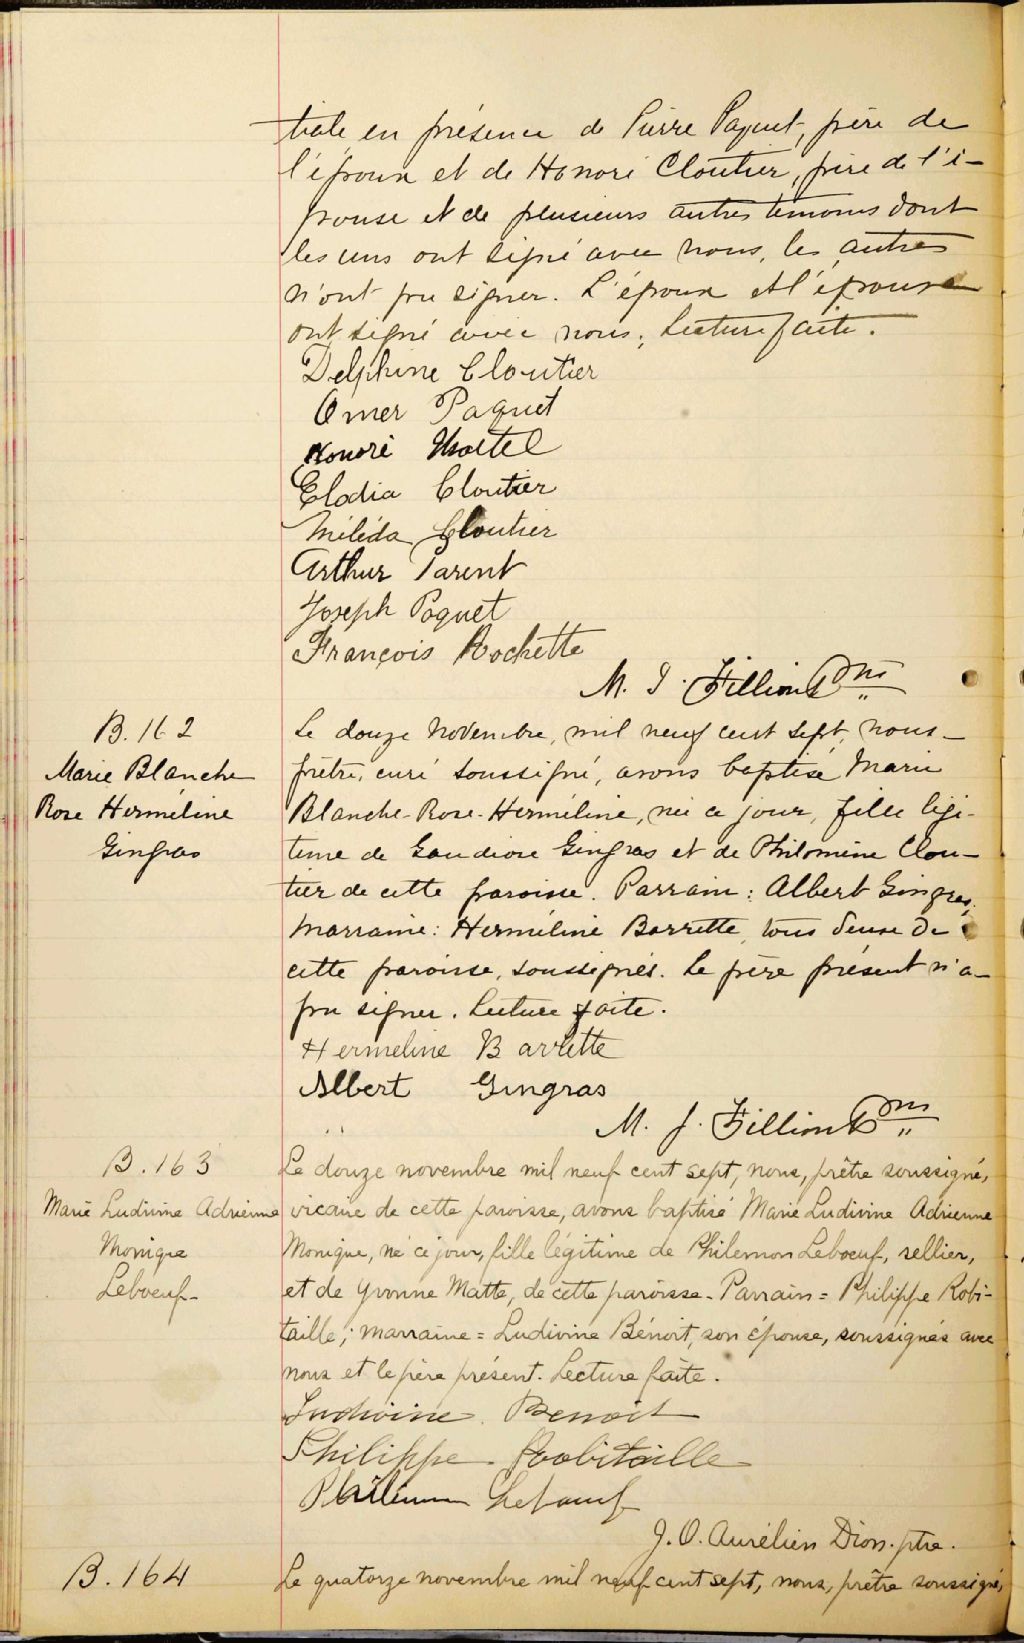 tiale en présence de Pierre Paquet, père de
l'époux et de Honoré Cloutier, père de l'é-
pouse et de plusieurs autres témoins dont
les uns ont signé avec nous, les autres
n'ont pu signer. L'époux et l'épouse
ont signé avec nous. Lecture faite.
Delphine Cloutier
Omer Paquet
Honoré Martel
Elodia Cloutier
Mélida Cloutier
Arthur Parent
Joseph Paquet
François Rochette
M. J. Fillion Ptre
B. 162
Marie Blanche
Rose Herméline
Gingras
Le douze Novembre, mil neuf cent sept, nous
prêtre, curé soussigné, avons baptisé Marie
Blanche-Rose-Herméline, née ce jour, fille légi-
time de Gaudiose Gingras et de Philomène Clou-
tier de cette paroisse. Parrain: Albert Gingras,
Marraine: Herméline Barrette, tous deux de
cette paroisse, soussignés. Le père présent n'a
pu signer. Lecture faite.
Hermeline Barrette
Albert Gingras
M. J. Fillion Ptre
B. 163
Marie Ludivine Adrienne
Monique
Leboeuf
Le douze novembre mil neuf cent sept, nous, prêtre soussigné,
vicaire de cette paroisse, avons baptisé Marie Ludivine Adrienne
Monique, né ce jour, fille légitime de Philemon Leboeuf, sellier,
et de Yvonne Matte, de cette paroisse - Parrain = Philippe Robi-
taille; marraine = Ludivine Bénoit, son épouse, soussignés avec
nous et le père présent. Lecture faite.
Ludivine Benoit
Philippe Robitaille
Philemon Lebœuf
J. O. Aurélien Dion. ptre.
B. 164
Le quatorze novembre mil neuf cent sept, nous, prêtre soussigné,